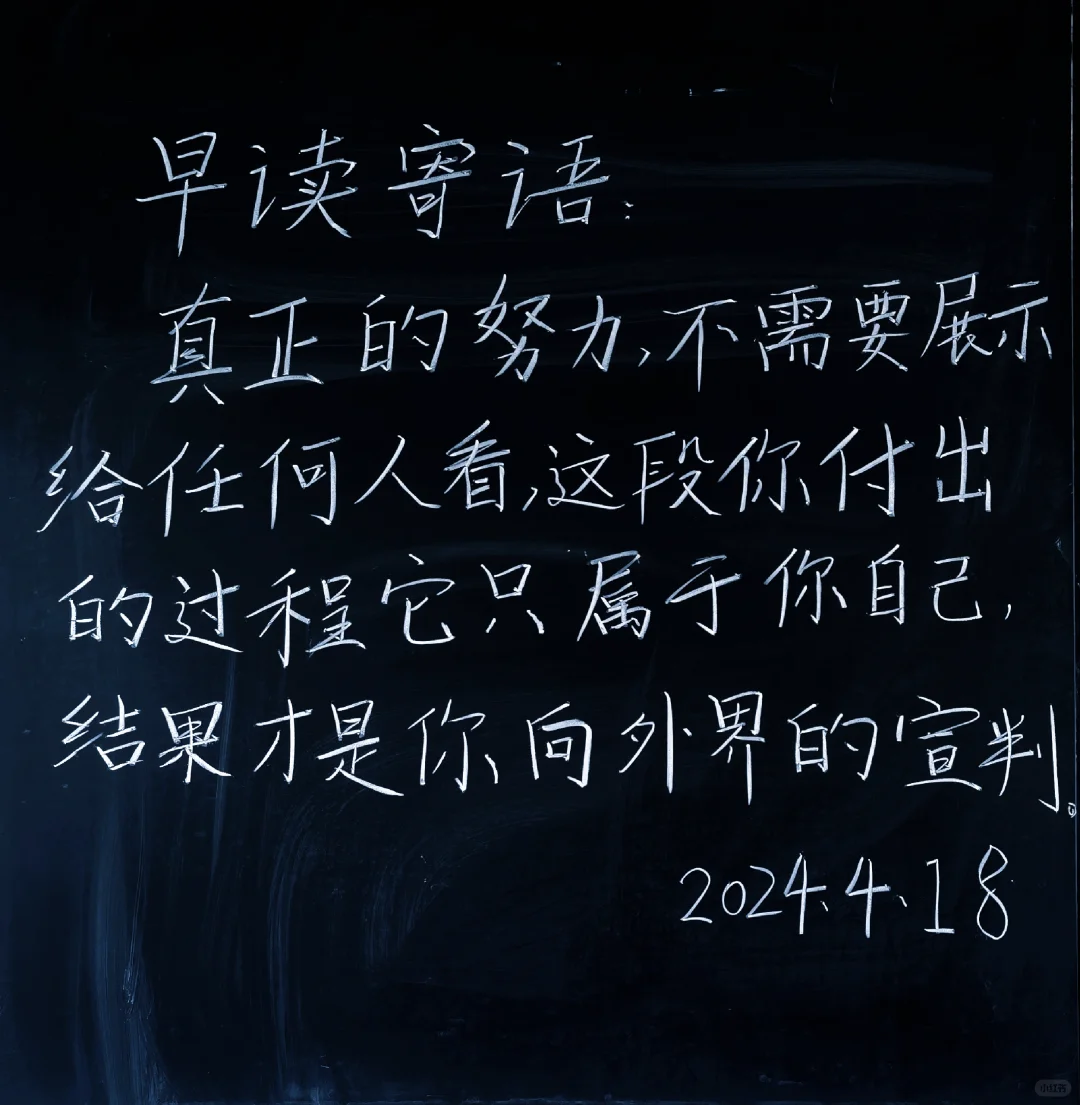 早读寄语:
真正的努力,不需要展示
给任何人看,这段你付出
的过程它只属于你自己,
结果才是你向外界的宣判。
2024.4.18
小红书